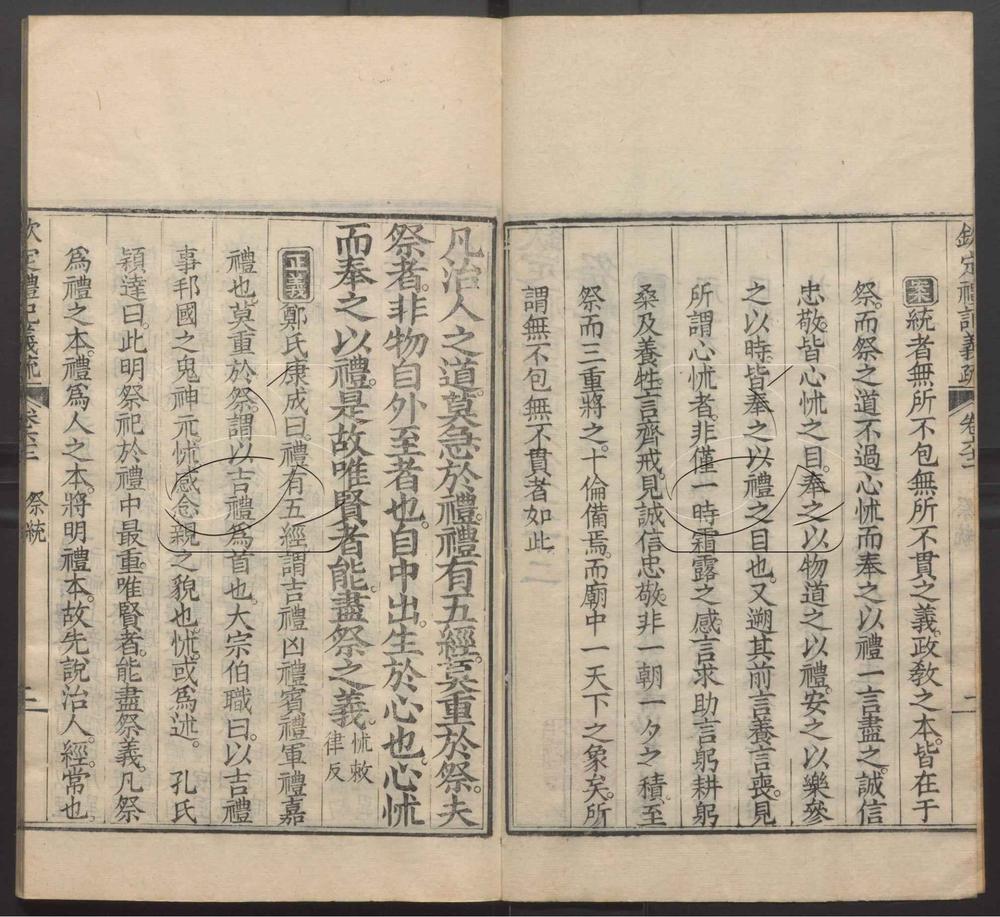 欽定禮記義疏 卷六十二 一
案統者無所不包無所不貫之義。政敎之本。皆在于
祭。而祭之道不過心怵而奉之以禮一言盡之。誠信
忠敬。皆心怵之目。奉之以物道之以禮。安之以樂。參
之以時。皆奉之以禮之目也。又遡其前言養言喪。見
所謂心怵者。非僅一時霜露之感。言求助言躬耕躬
桑及養牲。言齊戒。見誠信忠敬。非一朝一夕之積。至
祭而三重將之。十倫備焉。而廟中一天下之象矣。所
謂無不包無不貫者如此
凡治人之道。莫急於禮。禮有五經。莫重於祭。夫
祭者。非物自外至者也。自中出。生於心也。心怵
而奉之以禮。是故唯賢者能盡祭之義。怵敕律反
正義鄭氏康成曰。禮有五經謂吉禮凶禮賓禮軍禮嘉
禮也。莫重於祭。謂以吉禮爲首也。大宗伯職曰。以吉禮
事邦國之鬼神示。怵感念親之貌也。怵。或爲述。 孔氏
穎達曰。此明祭祀於禮中最重。唯賢者能盡祭義。凡祭
爲禮之本。禮爲人之本。將明禮本。故先說治人。經。常也。
欽定禮記義疏 卷六十二 祭統 二